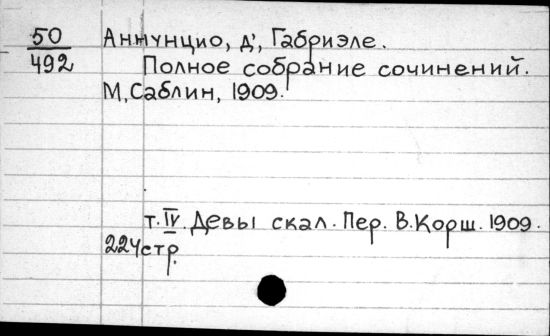 50
492
Аннунцио, д', Габриэле.
Полное собрание сочинений.
М, Саблин, 1909.
т. IV. Девы скал. Пер. В. Корш. 1909.
224 стр.